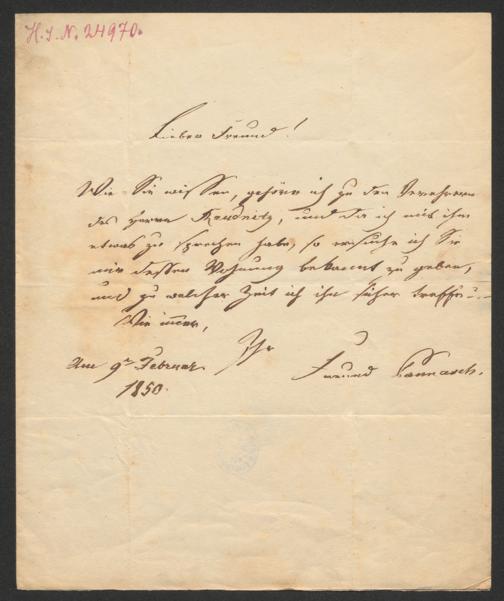 H.I.N. 24970.
Lieber Freund!
Wie Sie wissen, gehöre ich zu den Verehrern
des Herrn Raudnitz, und da ich mit ihm
etwas zu sprechen habe, so ersuche ich Sie
mir dessen Wohnung bekannt zu geben,
und zu welcher Zeit ich ihn sicher treffe. –
Wie immer,
Ihr
Am 9n Februar
Freund Pannasch.
1850.